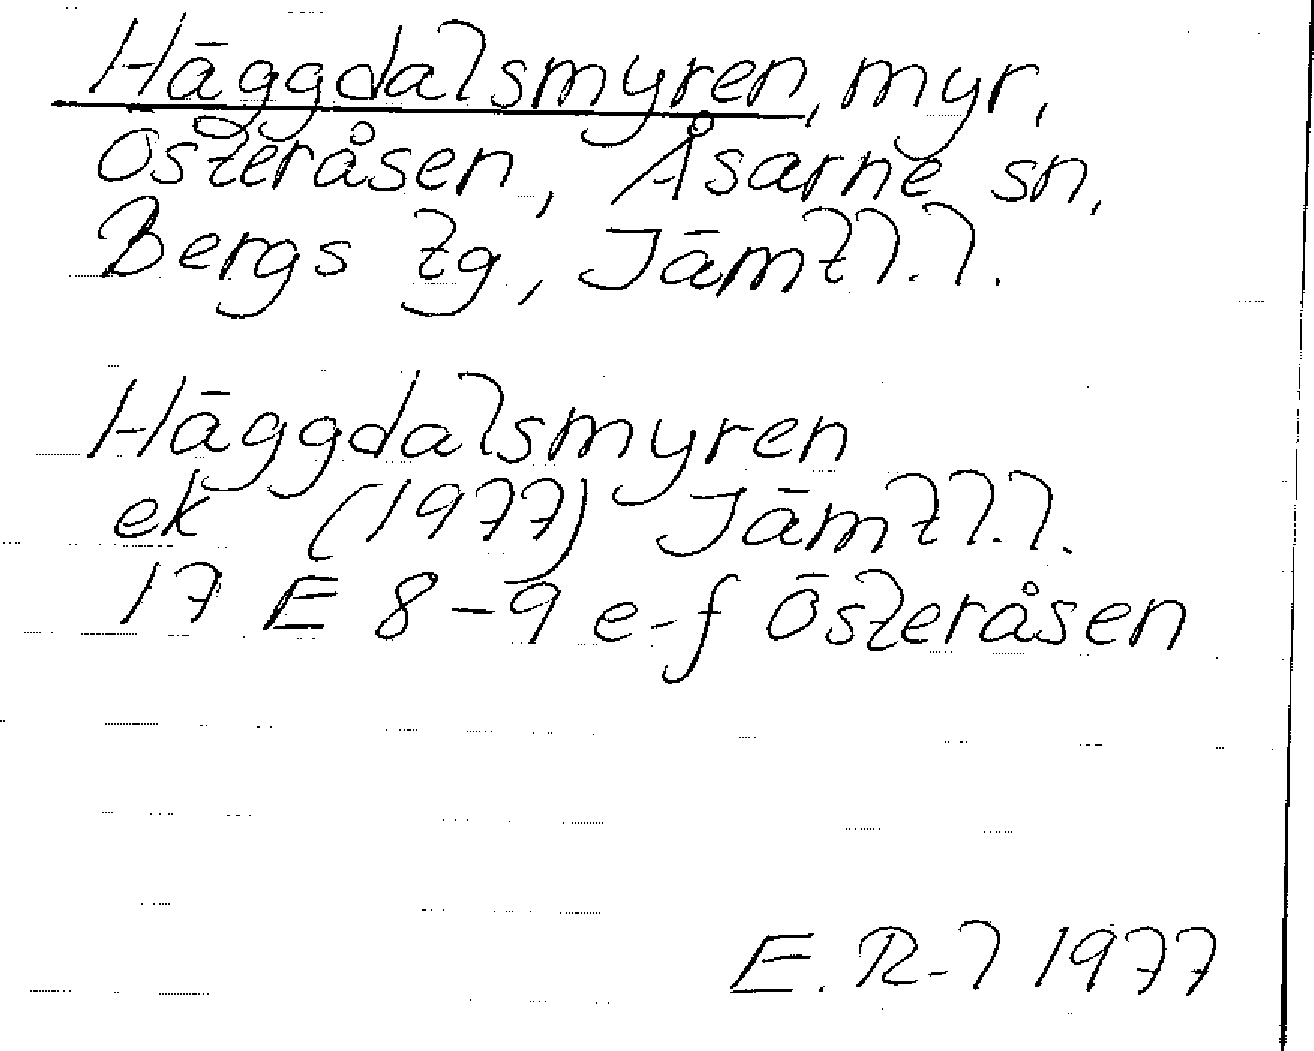 Häggdalsmyren, myr,
Österåsen, Åsarne sn,
Bergs tg, Jämtl. l.
Häggdalsmyren
ek (1977) Jämtl. l.
17 E 8-9 e-f Österåsen
E. R-l 1977